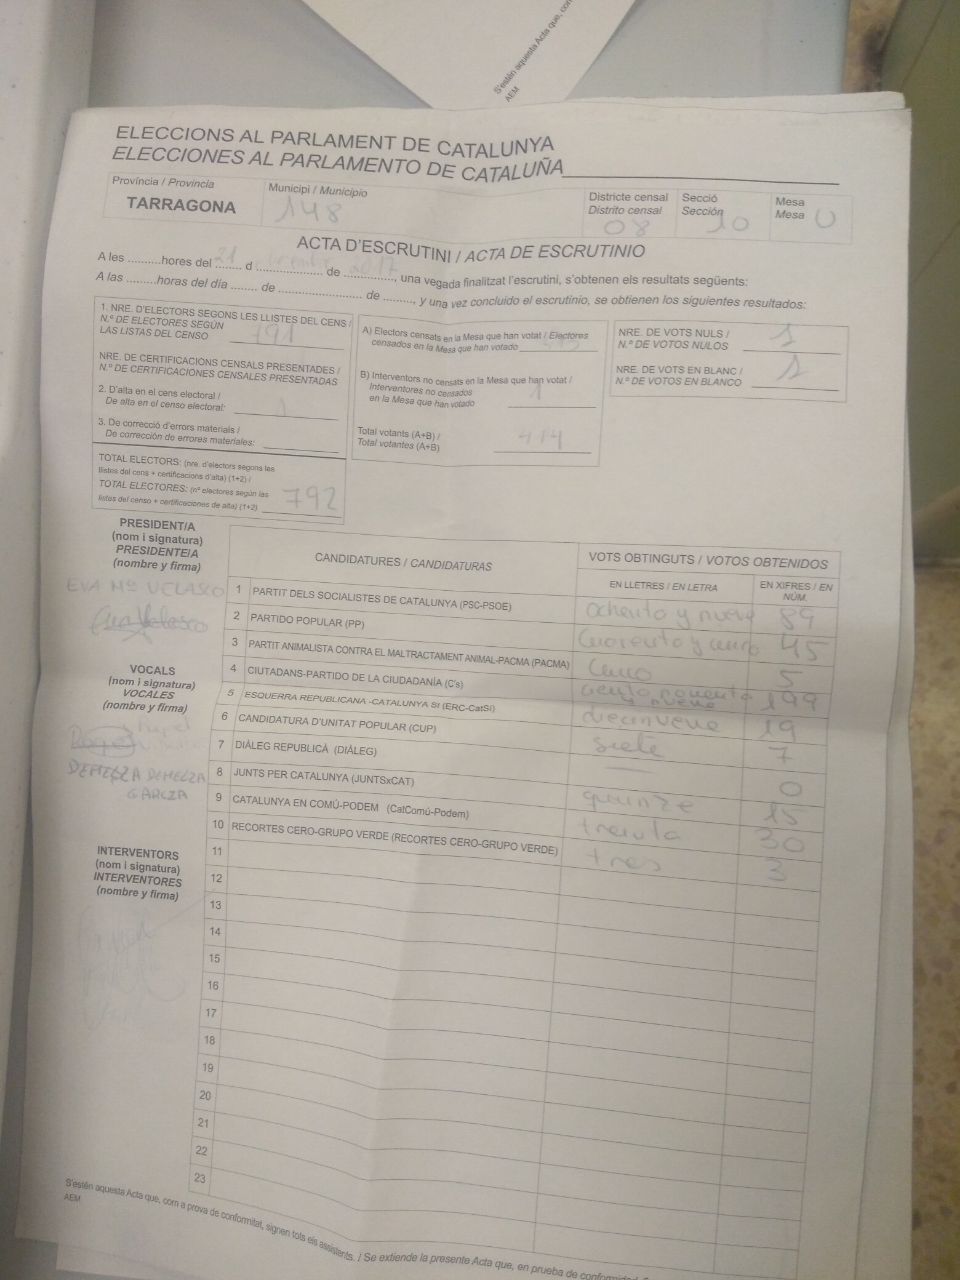 S'estén aquesta Acta que, com
AEM
ELECCIONS AL PARLAMENT DE CATALUNYA
ELECCIONES AL PARLAMENTO DE CATALUÑA
Província / Provincia
TARRAGONA
Municipi / Municipio
148
Districte censal
Distrito censal
08
Secció
Sección
10
Mesa
Mesa U
ACTA D'ESCRUTINI / ACTA DE ESCRUTINIO
A les ..........hores del 21 d ..................... de 2017, una vegada finalitzat l'escrutini, s'obtenen els resultats següents:
A las .........horas del día ....... de ......................... de ........., y una vez concluido el escrutinio, se obtienen los siguientes resultados:
1. NRE. D'ELECTORS SEGONS LES LLISTES DEL CENS /
N.º DE ELECTORES SEGÚN
LAS LISTAS DEL CENSO 791
NRE. DE CERTIFICACIONS CENSALS PRESENTADES /
N.º DE CERTIFICACIONES CENSALES PRESENTADAS
2. D'alta en el cens electoral /
De alta en el censo electoral: 1
3. De correcció d'errors materials /
De corrección de errores materiales:
TOTAL ELECTORS: (nre. d'electors segons les
llistes del cens + certificacions d'alta) (1+2) /
TOTAL ELECTORES: (nº electores según las
listas del censo + certificaciones de alta) (1+2) 792
A) Electors censats en la Mesa que han votat / Electores
censados en la Mesa que han votado
B) Interventors no censats en la Mesa que han votat /
Interventores no censados
en la Mesa que han votado 1
Total votants (A+B) /
Total votantes (A+B) 414
NRE. DE VOTS NULS /
N.º DE VOTOS NULOS 1
NRE. DE VOTS EN BLANC /
N.º DE VOTOS EN BLANCO 1
PRESIDENT/A
(nom i signatura)
PRESIDENTE/A
(nombre y firma)
EVA Mª VELASCO
Eva Velasco
VOCALS
(nom i signatura)
VOCALES
(nombre y firma)
DEMELZA DEMELZA
GARCZA
INTERVENTORS
(nom i signatura)
INTERVENTORES
(nombre y firma)
CANDIDATURES / CANDIDATURAS
VOTS OBTINGUTS / VOTOS OBTENIDOS
EN LLETRES / EN LETRA
EN XIFRES / EN
NÚM.
1 PARTIT DELS SOCIALISTES DE CATALUNYA (PSC-PSOE) ochenta y nueve 89
2 PARTIDO POPULAR (PP) Cuarenta y cinco 45
3 PARTIT ANIMALISTA CONTRA EL MALTRACTAMENT ANIMAL-PACMA (PACMA) Cinco 5
4 CIUTADANS-PARTIDO DE LA CIUDADANÍA (C's) ciento noventa y nueve 199
5 ESQUERRA REPUBLICANA -CATALUNYA SI (ERC-CatSI) diecinueve 19
6 CANDIDATURA D'UNITAT POPULAR (CUP) siete 7
7 DIÀLEG REPUBLICÀ (DIÀLEG) — 0
8 JUNTS PER CATALUNYA (JUNTSxCAT) quinze 15
9 CATALUNYA EN COMÚ-PODEM (CatComú-Podem) treinta 30
10 RECORTES CERO-GRUPO VERDE (RECORTES CERO-GRUPO VERDE) tres 3
11
12
13
14
15
16
17
18
19
20
21
22
23
S'estén aquesta Acta que, com a prova de conformitat, signen tots els assistents. / Se extiende la presente Acta que, en prueba de conformidad,
AEM